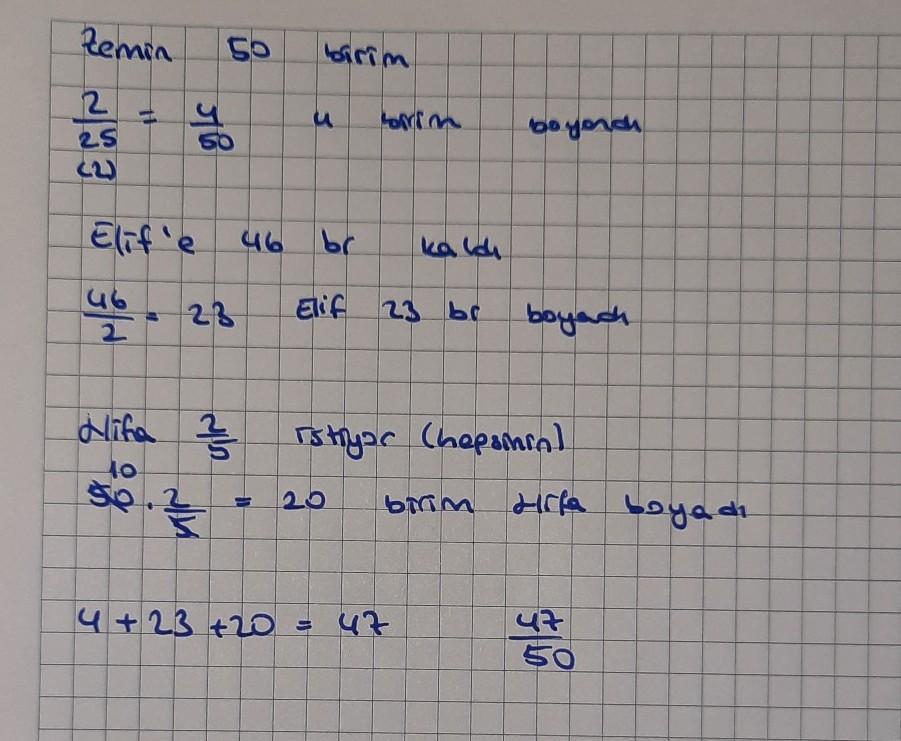 Zemin 50 birim
2/25 = 4/50 4 birim boyandı
(2)
Elif'e 46 br kaldı
46/2 = 23 Elif 23 br boyadı
Nifa 2/5 istiyor (hepsinin)
10
50 . 2/5 = 20 birim boyadı
4 + 23 + 20 = 47 47/50